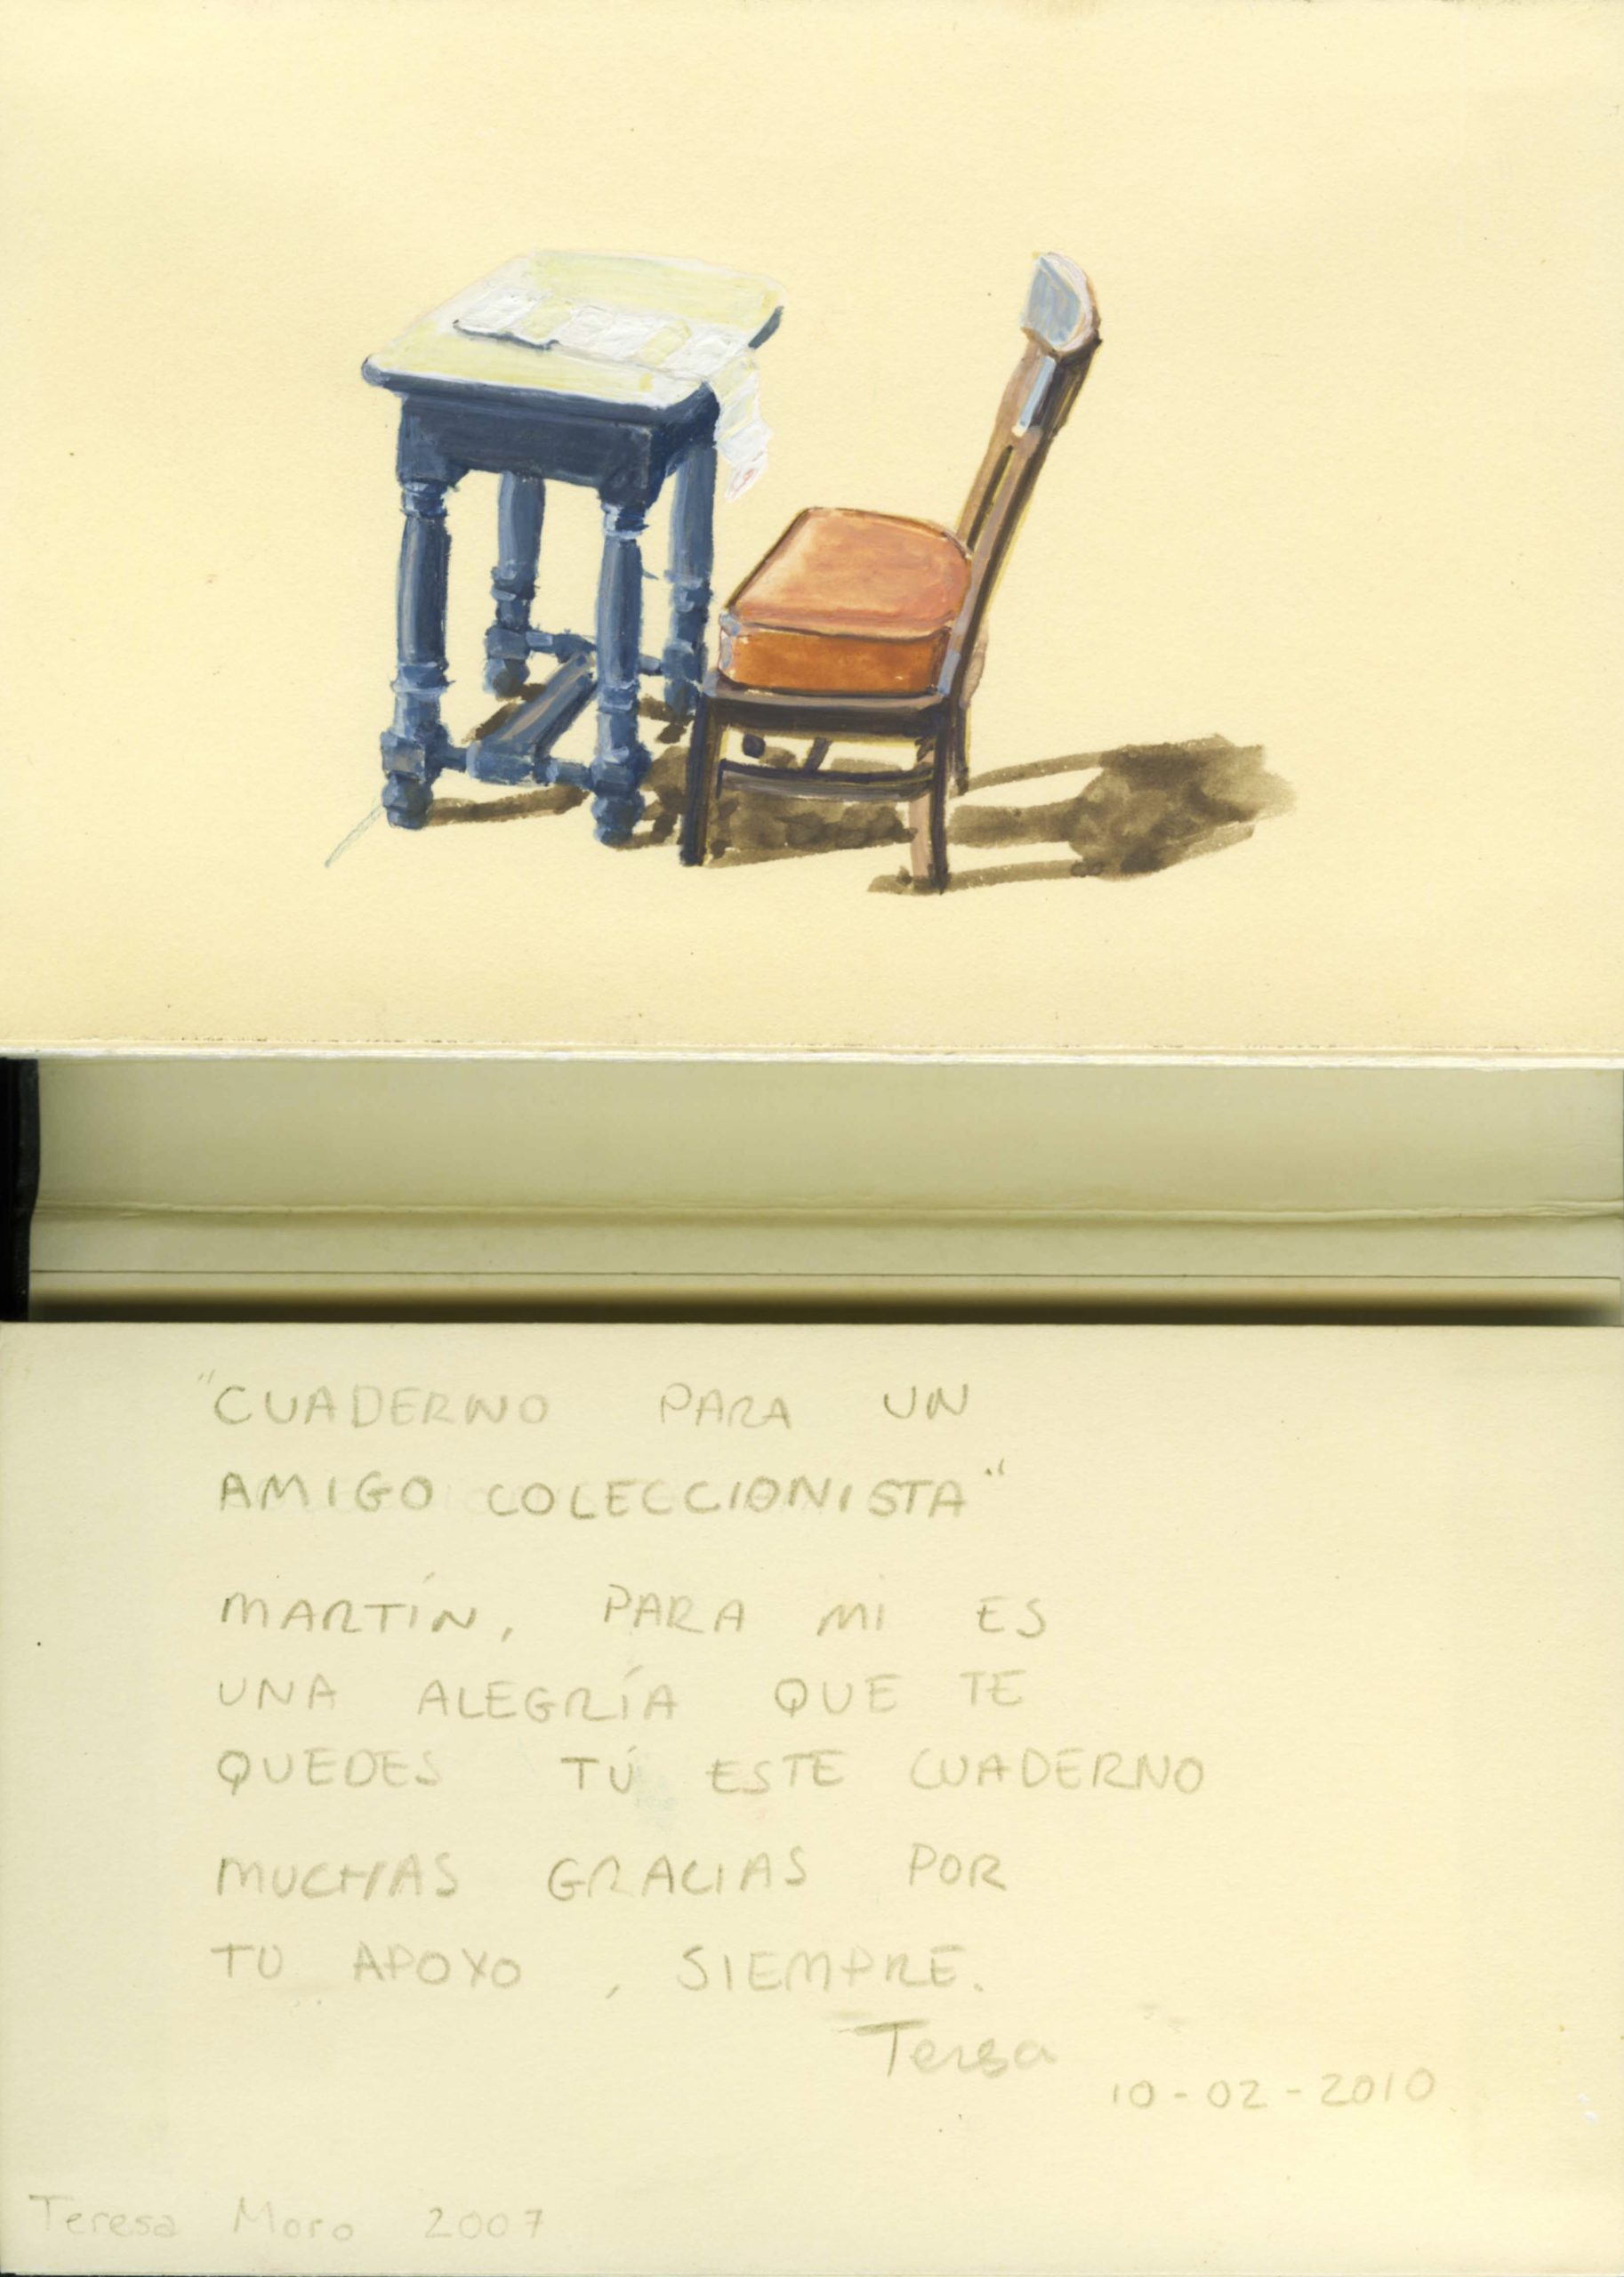 "CUADERNO PARA UN
AMIGO COLECCIONISTA"
MARTÍN, PARA MI ES
UNA ALEGRÍA QUE TE
QUEDES TÚ ESTE CUADERNO
MUCHAS GRACIAS POR
TU APOYO , SIEMPRE.
Teresa
10-02-2010
Teresa Moro 2007